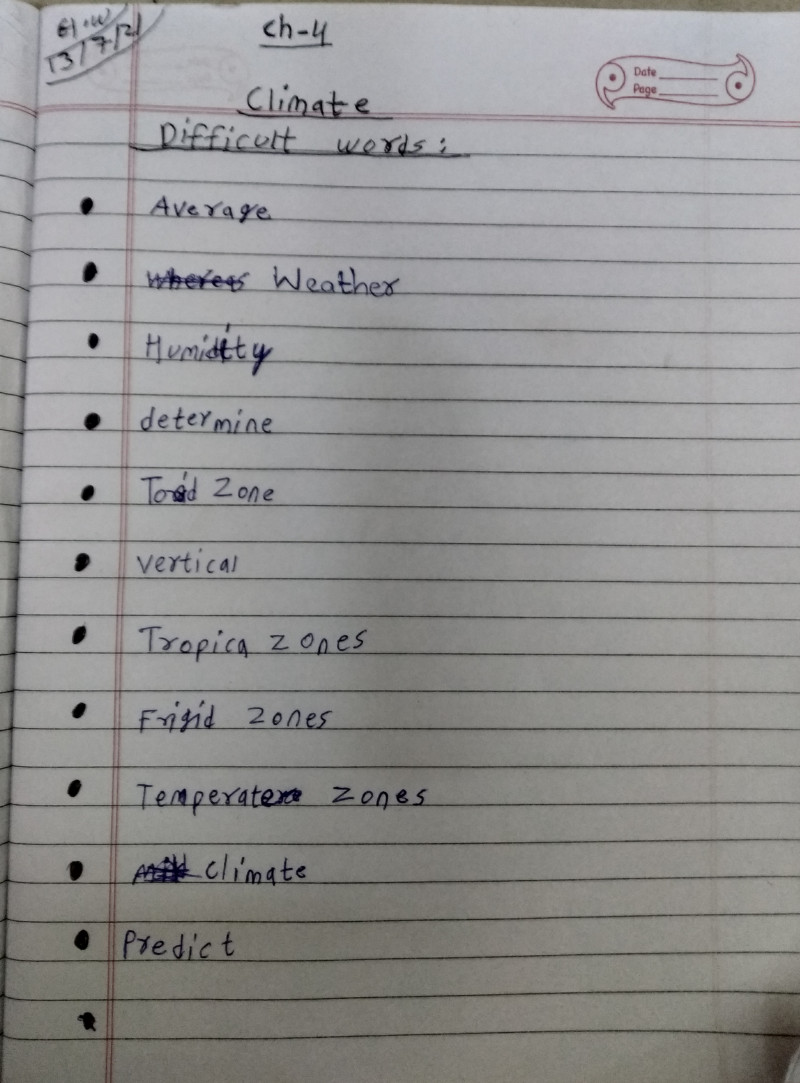 13/7/21
Ch-4
Date
Page
Climate
Difficult words:
Average
Weather
Humidity
determine
Torid Zone
vertical
Tropica zones
Frigid zones
Temperate zones
climate
Predict